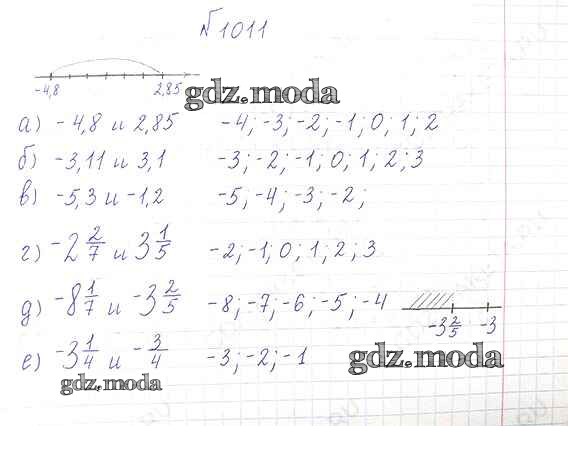 №1011
-4,8 2,85
gdz.moda
а) -4,8 и 2,85 -4; -3; -2; -1; 0; 1; 2
б) -3,11 и 3,1 -3; -2; -1; 0; 1; 2; 3
в) -5,3 и -1,2 -5; -4; -3; -2;
г) -2 2/7 и 3 1/5 -2; -1; 0; 1; 2; 3
д) -8 1/7 и -3 2/5 -8; -7; -6; -5; -4
-3 2/5 -3
е) -3 1/4 и -3/4 -3; -2; -1
gdz.moda
gdz.moda